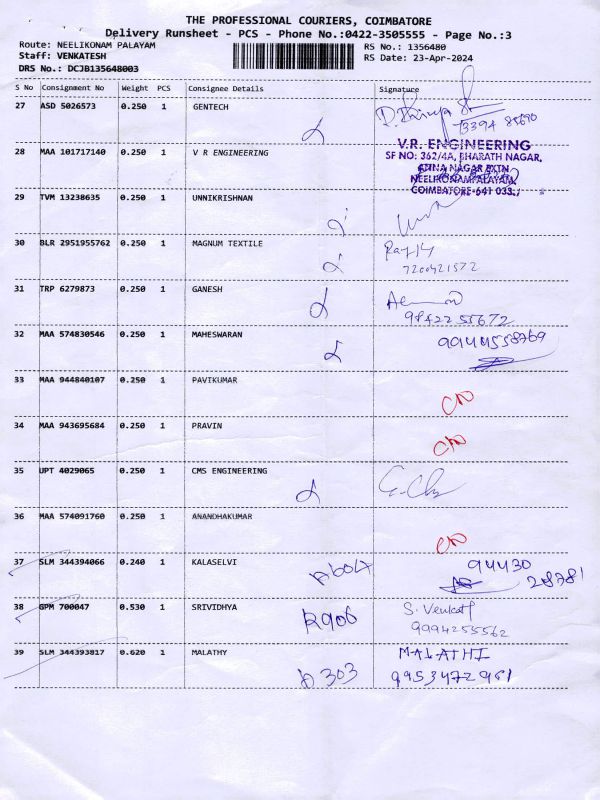 THE PROFESSIONAL COURIERS, COIMBATORE
Delivery Runsheet - PCS - Phone No.:0422-3505555 - Page No.:3
Route: NEELIKONAM PALAYAM
RS No.: 1356480
Staff: VENKATESH
RS Date: 23-Apr-2024
DRS No.: DCJB135648003
S No Consignment No Weight PCS Consignee Details Signature
27 ASD 5026573 0.250 1 GENTECH
28 MAA 101717140 0.250 1 V R ENGINEERING
V.R. ENGINEERING
SF NO: 362/4A, BHARATH NAGAR,
NEELIKONAMPALAYAM,
COIMBATORE-641 033.
29 TVM 13238635 0.250 1 UNNIKRISHNAN
30 BLR 2951955762 0.250 1 MAGNUM TEXTILE
7200421572
31 TRP 6279873 0.250 1 GANESH
9842255672
32 MAA 574830546 0.250 1 MAHESWARAN 9944558769
33 MAA 944840107 0.250 1 PAVIKUMAR
34 MAA 943695684 0.250 1 PRAVIN
35 UPT 4029065 0.250 1 CMS ENGINEERING
36 MAA 574091760 0.250 1 ANANDHAKUMAR
37 SLM 344394066 0.240 1 KALASELVI 94430
28781
38 GPM 700047 0.530 1 SRIVIDHYA R906 S. Venkat
9994255562
39 SLM 344393817 0.620 1 MALATHY D 303 MALATHI
9953472981